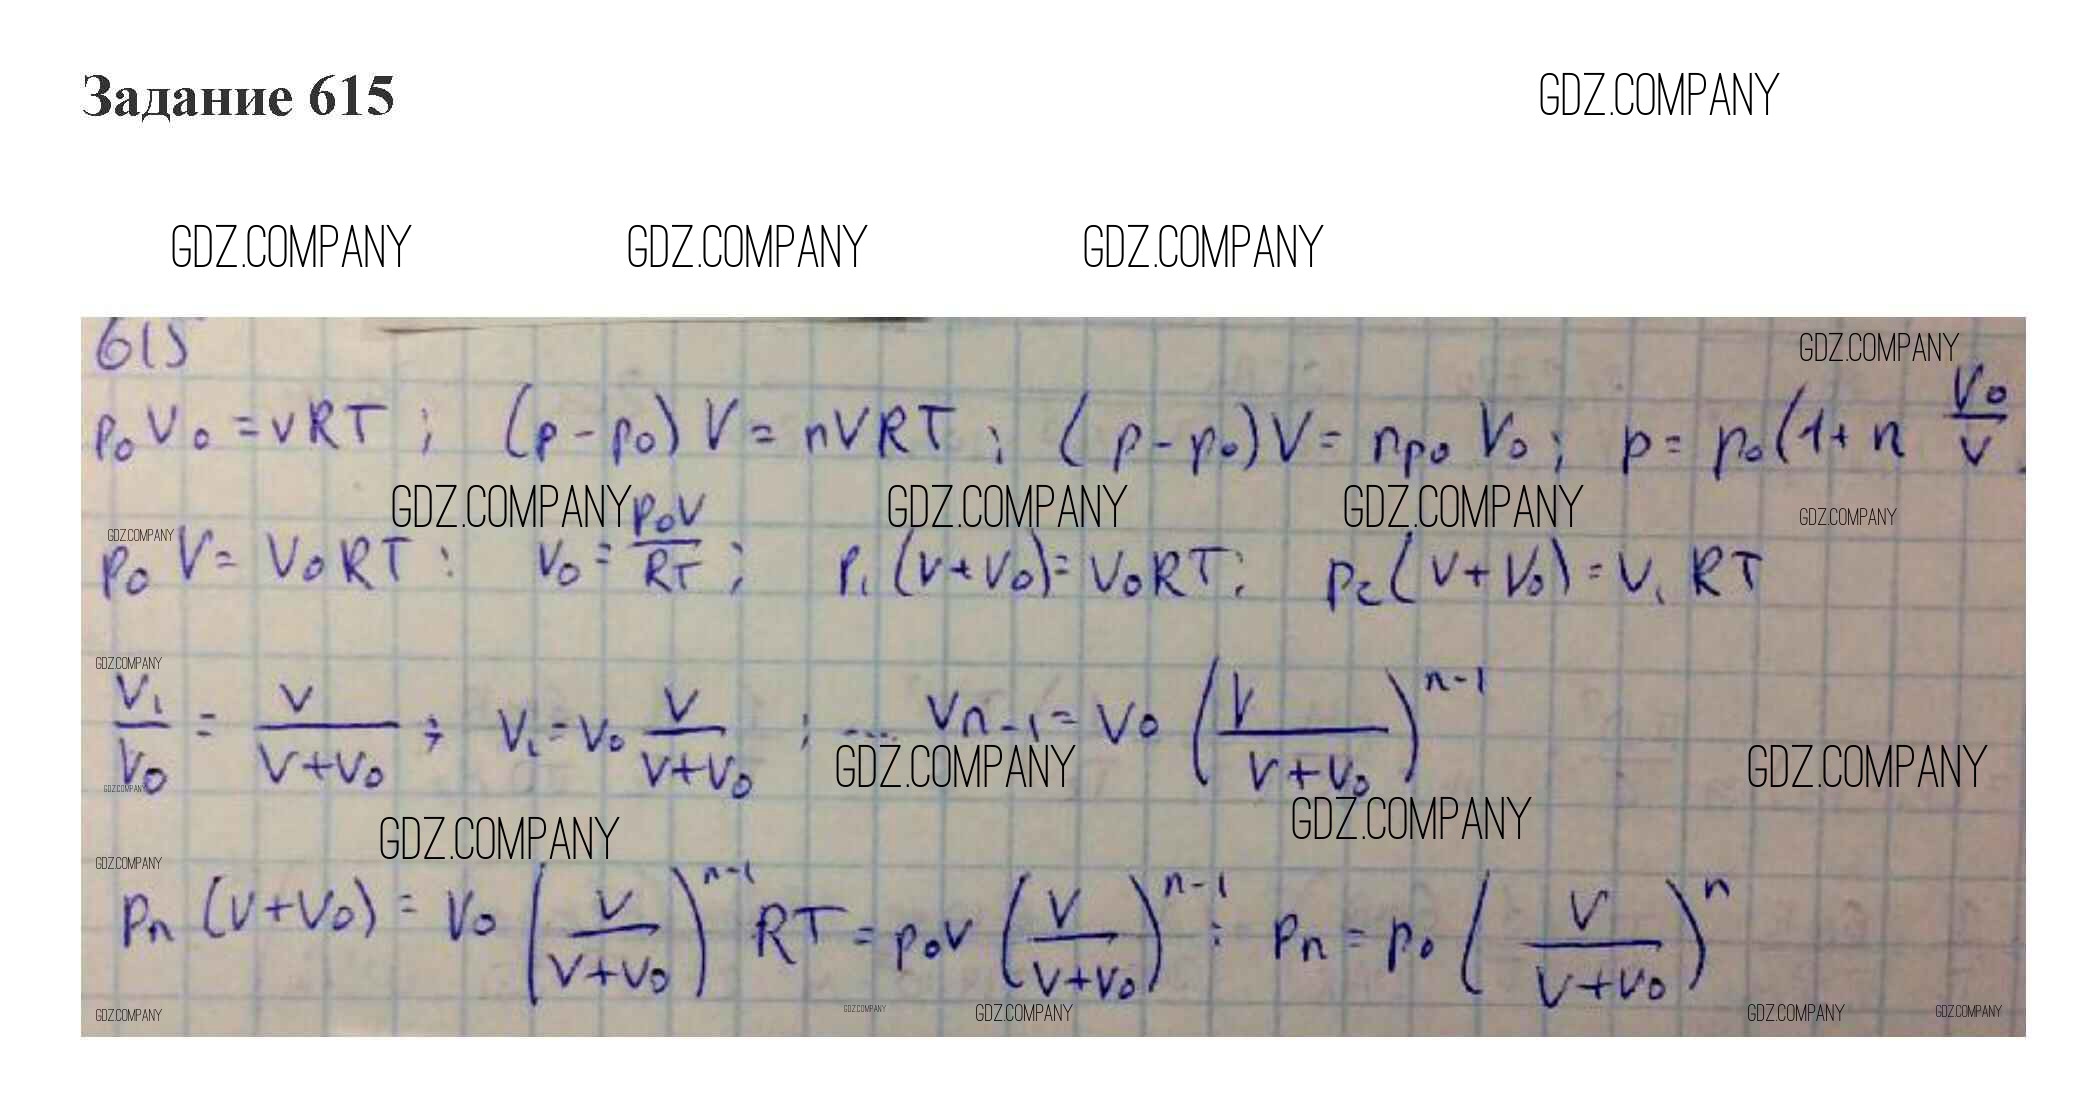 Задание 615
GDZ.COMPANY
GDZ.COMPANY GDZ.COMPANY GDZ.COMPANY
615
GDZ.COMPANY
p₀V₀ = νRT ; (p - p₀) V = nVRT ; (p - p₀)V = np₀ V₀ ; p = p₀(1 + n V₀/V
GDZ.COMPANY GDZ.COMPANY GDZ.COMPANY GDZ.COMPANY
GDZ.COMPANY
p₀ V = V₀RT ; V₀ = p₀V/RT ; p₁(V+V₀) = V₀RT ; p₂(V+V₀) = V₁ RT
GDZ.COMPANY
V₁/V₀ = V/(V+V₀) ; V₁ = V₀ V/(V+V₀) ; ... Vₙ₋₁ = V₀ (V/(V+V₀))ⁿ⁻¹
GDZ.COMPANY GDZ.COMPANY
GDZ.COMPANY
GDZ.COMPANY
GDZ.COMPANY
GDZ.COMPANY
pₙ (V+V₀) = V₀ (V/(V+V₀))ⁿ⁻¹ RT = p₀V (V/(V+V₀))ⁿ⁻¹ ; pₙ = p₀ (V/(V+V₀))ⁿ
GDZ.COMPANY GDZ.COMPANY GDZ.COMPANY GDZ.COMPANY GDZ.COMPANY